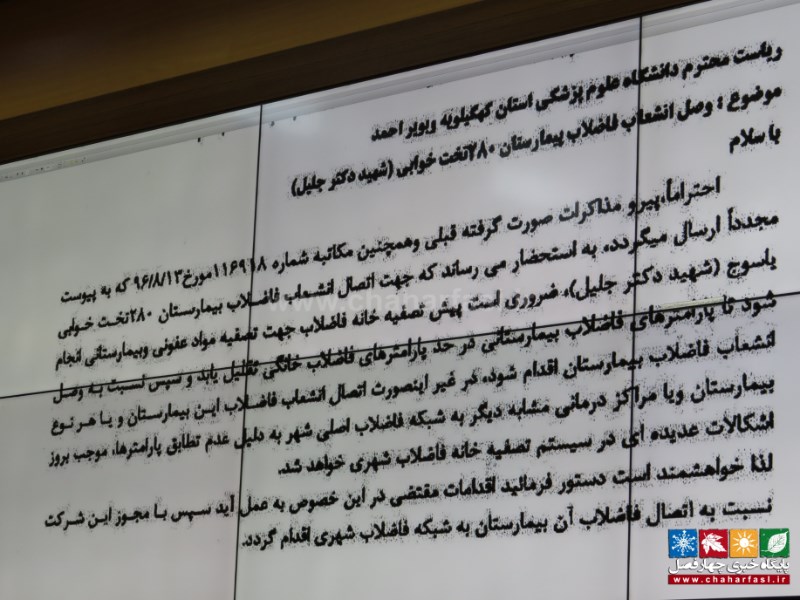 ریاست محترم دانشگاه علوم پزشکی استان کهگیلویه وبویر احمد
موضوع : وصل انشعاب فاضلاب بیمارستان ۲۸۰تخت خوابی (شهید دکتر جلیل)
با سلام
احتراماً،پیرو مذاکرات صورت گرفته قبلی وهمچنین مکاتبه شماره ۱۱۶۹۱۸مورخ۹۶/۸/۱۳ که به پیوست
مجدداً ارسال میگردد، به استحضار می رساند که جهت اتصال انشعاب فاضلاب بیمارستان ۲۸۰تخت خوابی
یاسوج (شهید دکتر جلیل)، ضروری است پیش تصفیه خانه فاضلاب جهت تصفیه مواد عفونی وبیمارستانی انجام
شود تا پارامترهای فاضلاب بیمارستانی در حد پارامترهای فاضلاب خانگی تقلیل یابد و سپس نسبت به وصل
انشعاب فاضلاب بیمارستان اقدام شود، در غیر اینصورت اتصال انشعاب فاضلاب این بیمارستان و یا هر نوع
بیمارستان ویا مراکز درمانی مشابه دیگر به شبکه فاضلاب اصلی شهر به دلیل عدم تطابق پارامترها، موجب بروز
اشکالات عدیده ای در سیستم تصفیه خانه فاضلاب شهری خواهد شد.
لذا خواهشمند است دستور فرمائید اقدامات مقتضی در این خصوص به عمل آید سپس با مجوز این شرکت
نسبت به اتصال فاضلاب آن بیمارستان به شبکه فاضلاب شهری اقدام گردد.
www.chaharfasl.ir
پایگاه خبری چهارفصل
www.chaharfasl.ir